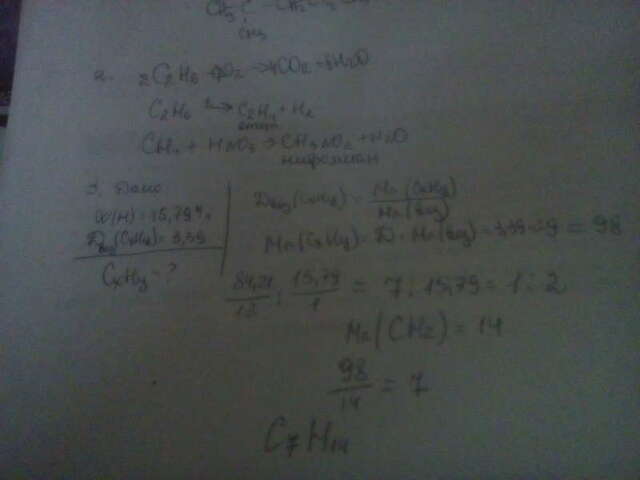 CH₃ C – CH₂
CH₃
2. 2C₂H₆ + O₂ → CO₂ + H₂O
C₂H₆ → C₂H₄ + H₂
этен
CH₄ + HNO₃ → CH₃NO₂ + H₂O
нитрометан
3. Дано
ω(H) = 15,79%
D возд (CxHy) = 3,39
CxHy - ?
D возд (CxHy) = Mr(CxHy) / Mr(возд)
Mr(CxHy) = D · Mr(возд) = 3,39 · 29 = 98
84,21/12 : 15,79/1 = 7 : 15,79 = 1 : 2
Mr(CH₂) = 14
98/14 = 7
C₇H₁₄